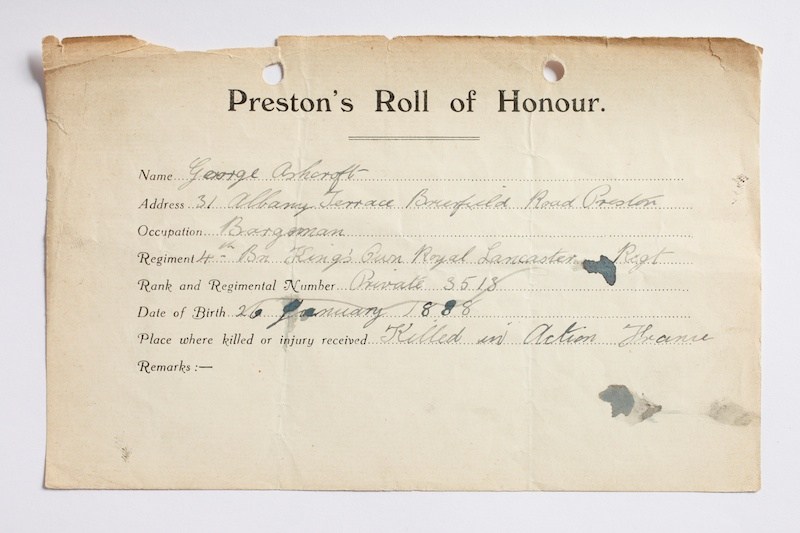 Preston's Roll of Honour.
Name George Ashcroft
Address 31 Albany Terrace Brierfield Road Preston
Occupation Bargeman
Regiment 4th Bn King's Own Royal Lancaster Regt
Rank and Regimental Number Private 3518
Date of Birth 26 January 1888
Place where killed or injury received Killed in Action France
Remarks :—